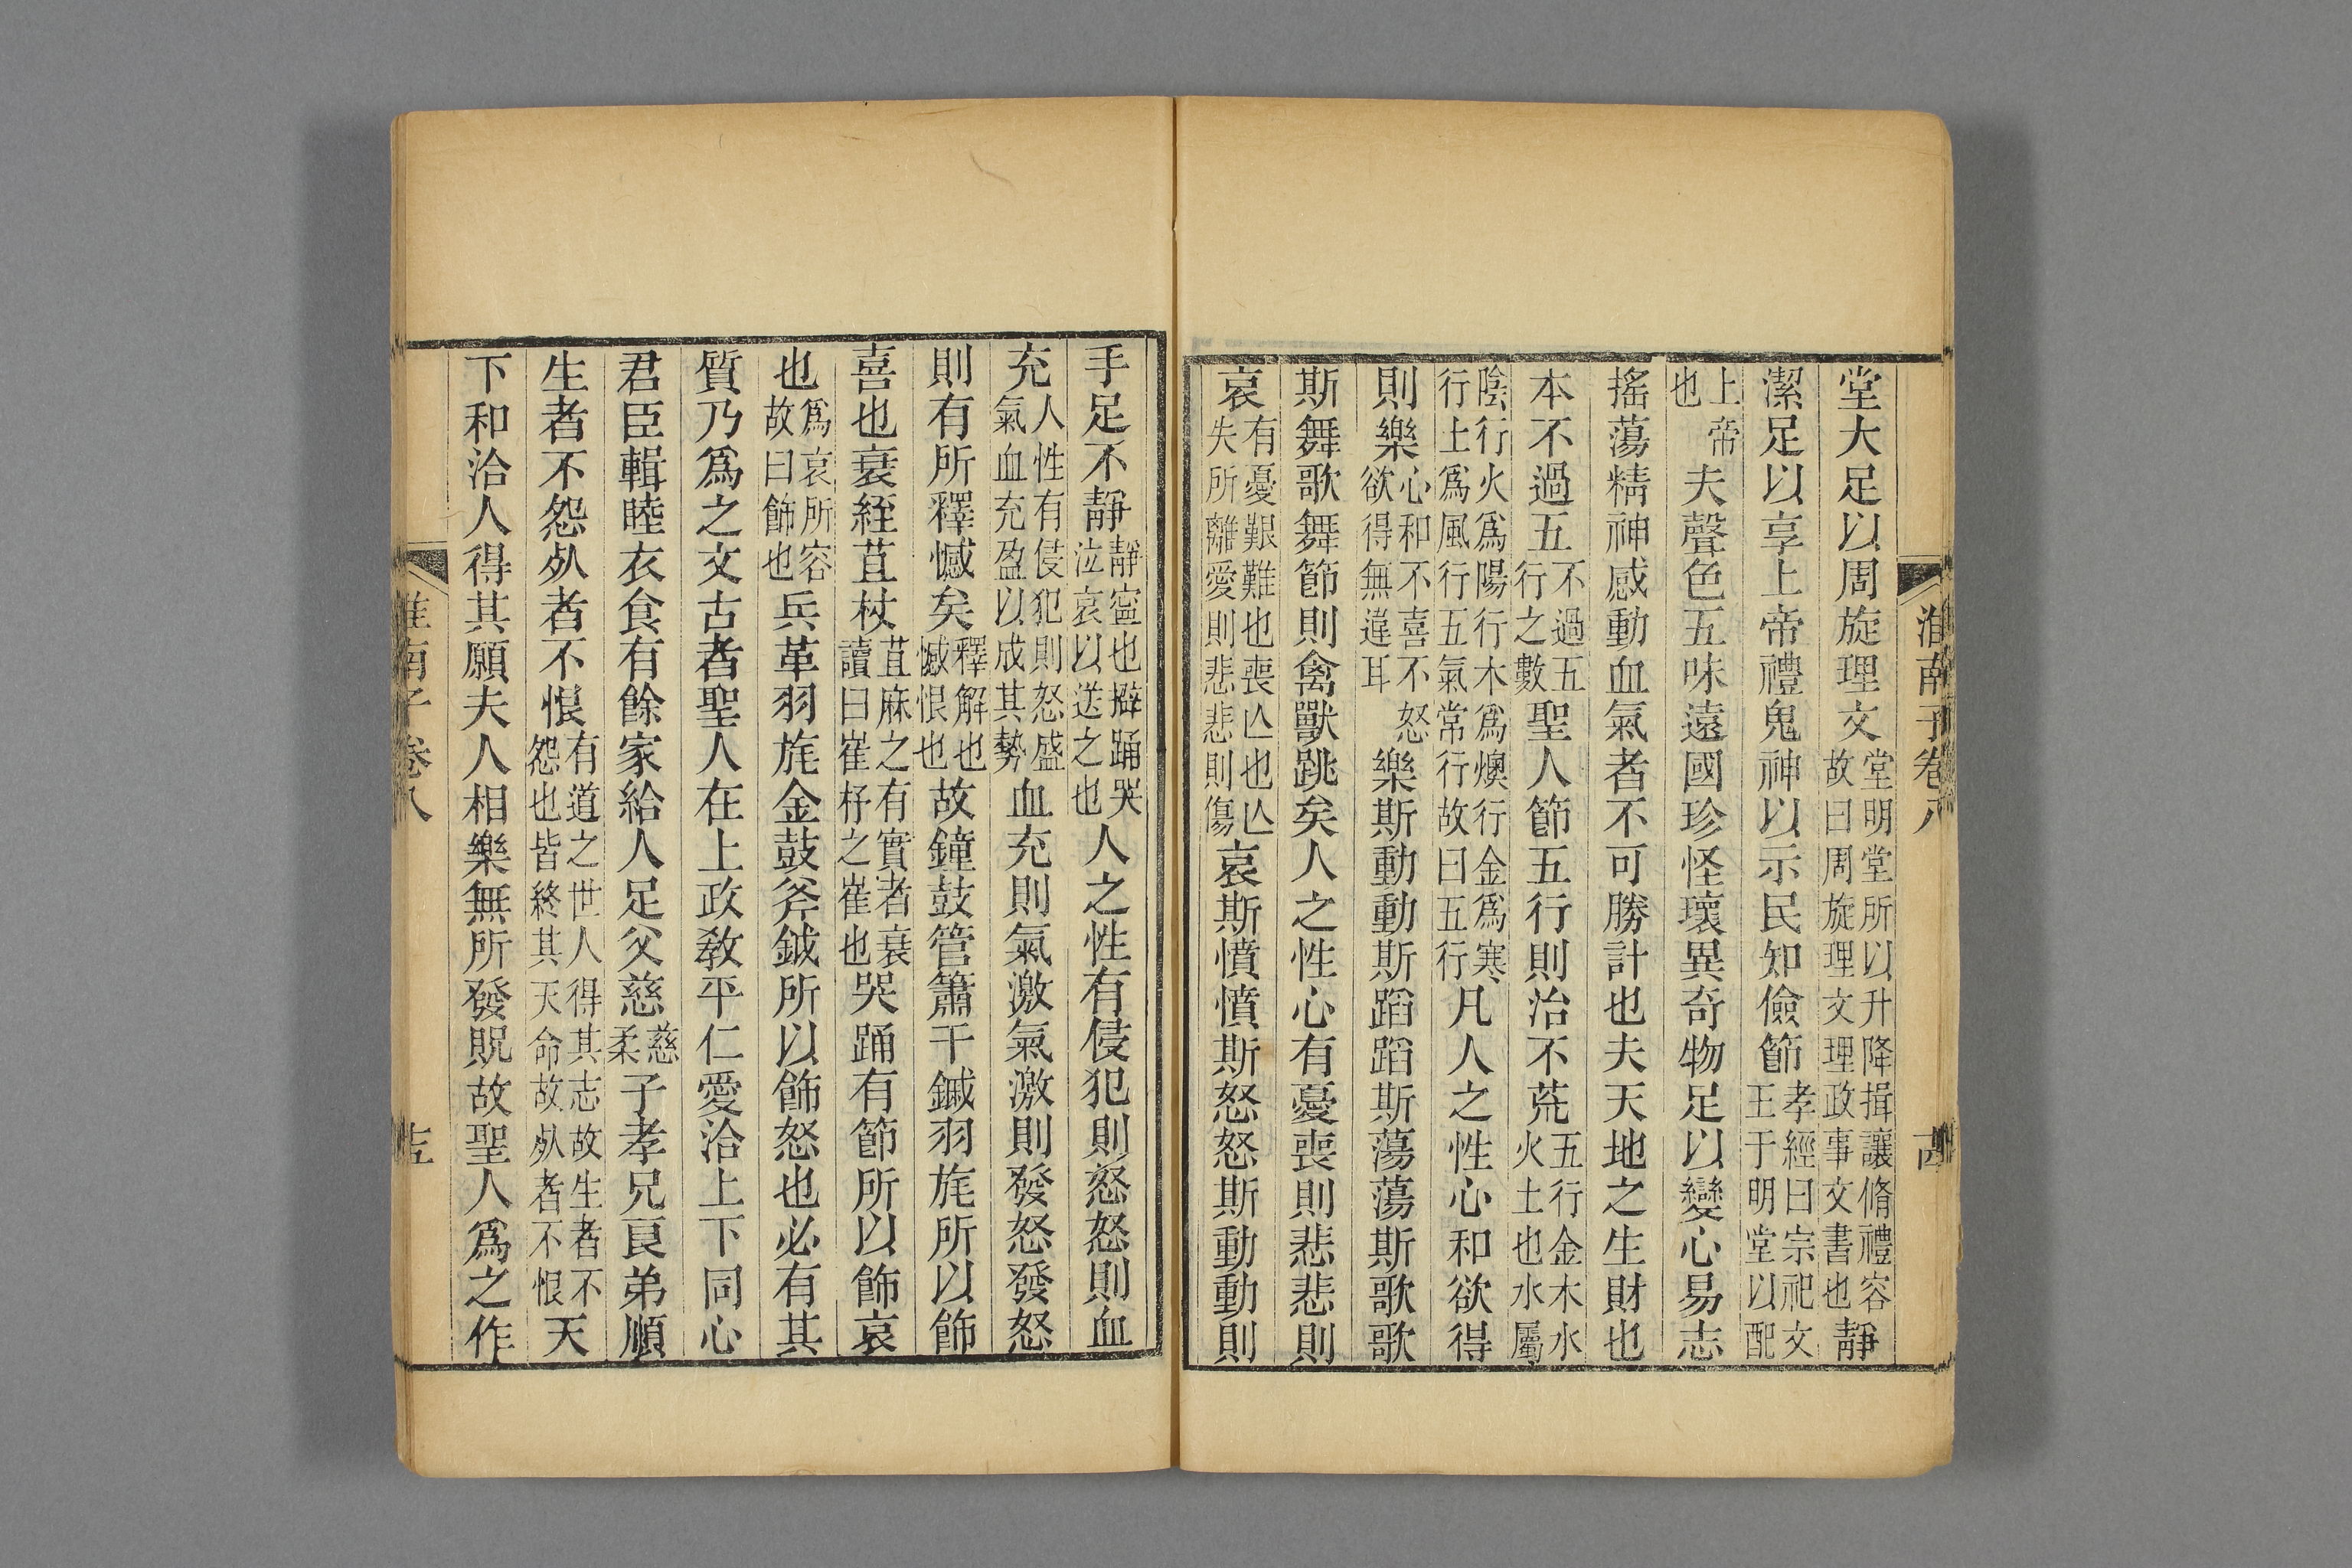 淮南子卷八
堂大足以周旋理文堂明堂所以升降揖讓脩禮容故曰周旋理文理政事文書也靜
潔足以享上帝禮鬼神以示民知儉節孝經曰宗祀文王于明堂以配
上帝也夫聲色五味遠國珍怪瓌異奇物足以變心易志
搖蕩精神感動血氣者不可勝計也夫天地之生財也
本不過五不過五行之數聖人節五行則治不荒五行金木水火土也水屬
陰行火為陽行木爲燠行金爲寒行土爲風行五氣常行故曰五行凡人之性心和欲得
則樂心和不喜不怒欲得無違耳樂斯動動斯蹈蹈斯蕩蕩斯歌歌
斯舞歌舞節則禽獸跳矣人之性心有憂喪則悲悲則
哀有憂艱難也喪亾也亾失所離愛則悲悲則傷哀斯憤憤斯怒怒斯動動則
手足不靜靜寍也擗踊哭泣哀以送之也人之性有侵犯則怒怒則血
充人性有侵犯則怒盛氣血充盈以成其勢血充則氣激氣激則發怒發怒
則有所釋憾矣釋解也憾恨也故鐘鼓管簫干鏚羽旄所以飾
喜也衰絰苴杖苴麻之有實者衰讀曰崔杼之崔也哭踊有節所以飾哀
也爲哀所容故曰飾也兵革羽旄金鼓斧鉞所以飾怒也必有其
質乃爲之文古者聖人在上政敎平仁愛洽上下同心
君臣輯睦衣食有餘家給人足父慈慈柔子孝兄良弟順
生者不怨𣦸者不恨有道之世人得其志故生者不怨也皆終其天命故𣦸者不恨天
下和洽人得其願夫人相樂無所發貺故聖人爲之作
淮南子卷八